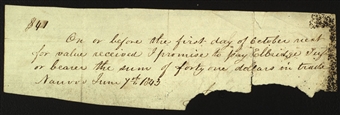 $41
On or before the first day of October next
for value received I promise to pay Elbridge Tufts
or bearer the sum of forty one dollars in trade
Nauvoo June 7th 1843